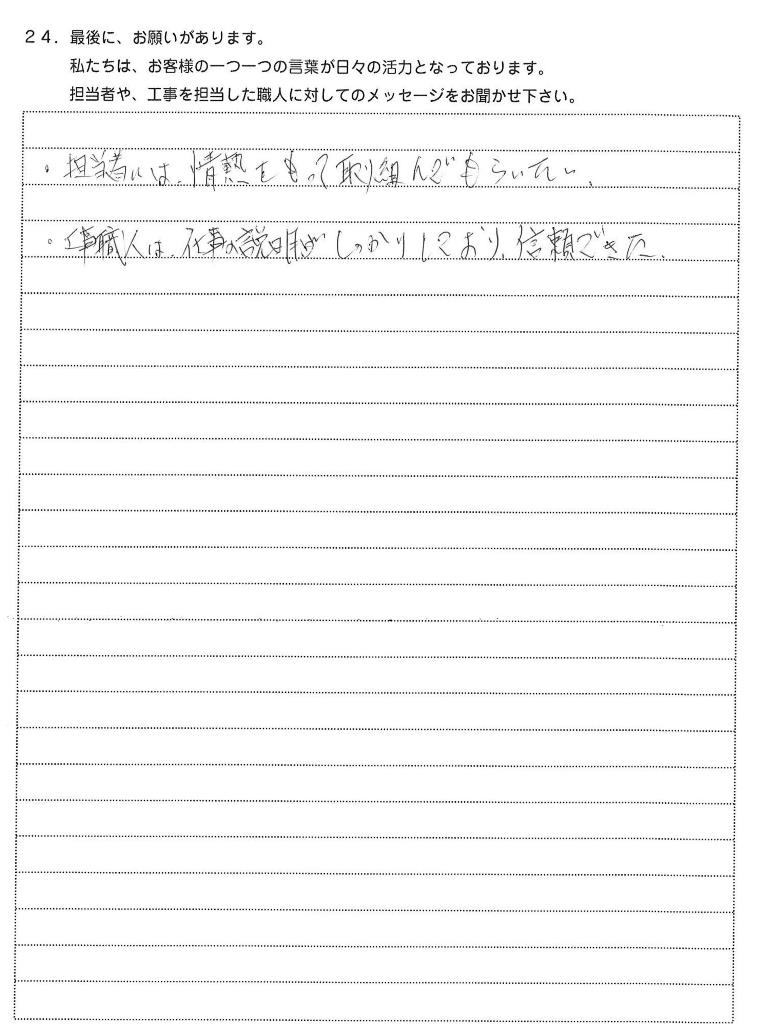 ２４．最後に、お願いがあります。
私たちは、お客様の一つ一つの言葉が日々の活力となっております。
担当者や、工事を担当した職人に対してのメッセージをお聞かせ下さい。
・担当者には、情熱をもって取り組んでもらいたい。
・工事職人は、仕事の説明がしっかりしており、信頼できた。